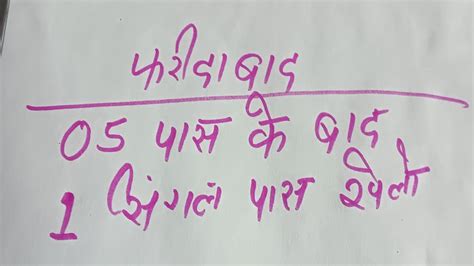 फरीदाबाद
05 पास के बाद
1 सिंगल पास खेलो